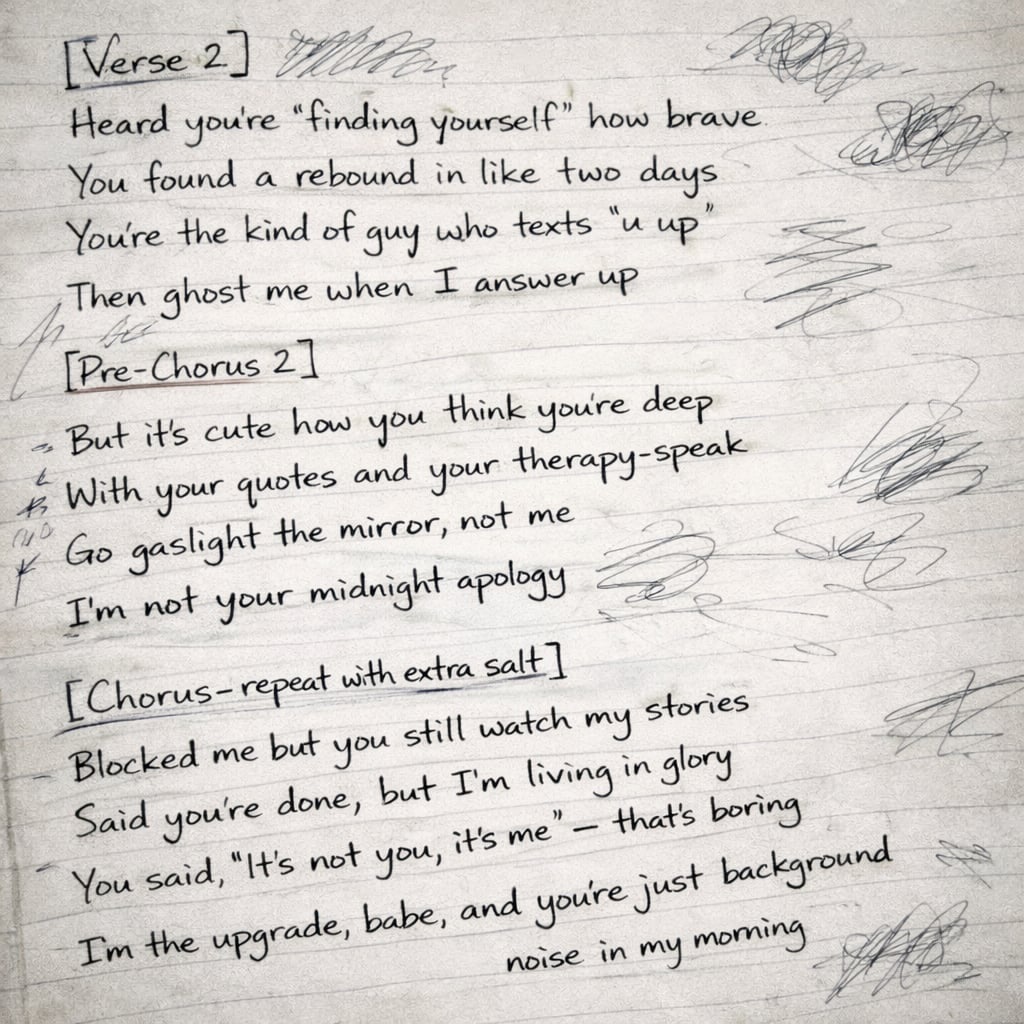 [Verse 2]
Heard you're "finding yourself" how brave
You found a rebound in like two days
You're the kind of guy who texts "u up"
Then ghost me when I answer up
[Pre-Chorus 2]
But it's cute how you think you're deep
With your quotes and your therapy-speak
Go gaslight the mirror, not me
I'm not your midnight apology
[Chorus-repeat with extra salt]
Blocked me but you still watch my stories
Said you're done, but I'm living in glory
You said, "It's not you, it's me" – that's boring
I'm the upgrade, babe, and you're just background
noise in my morning